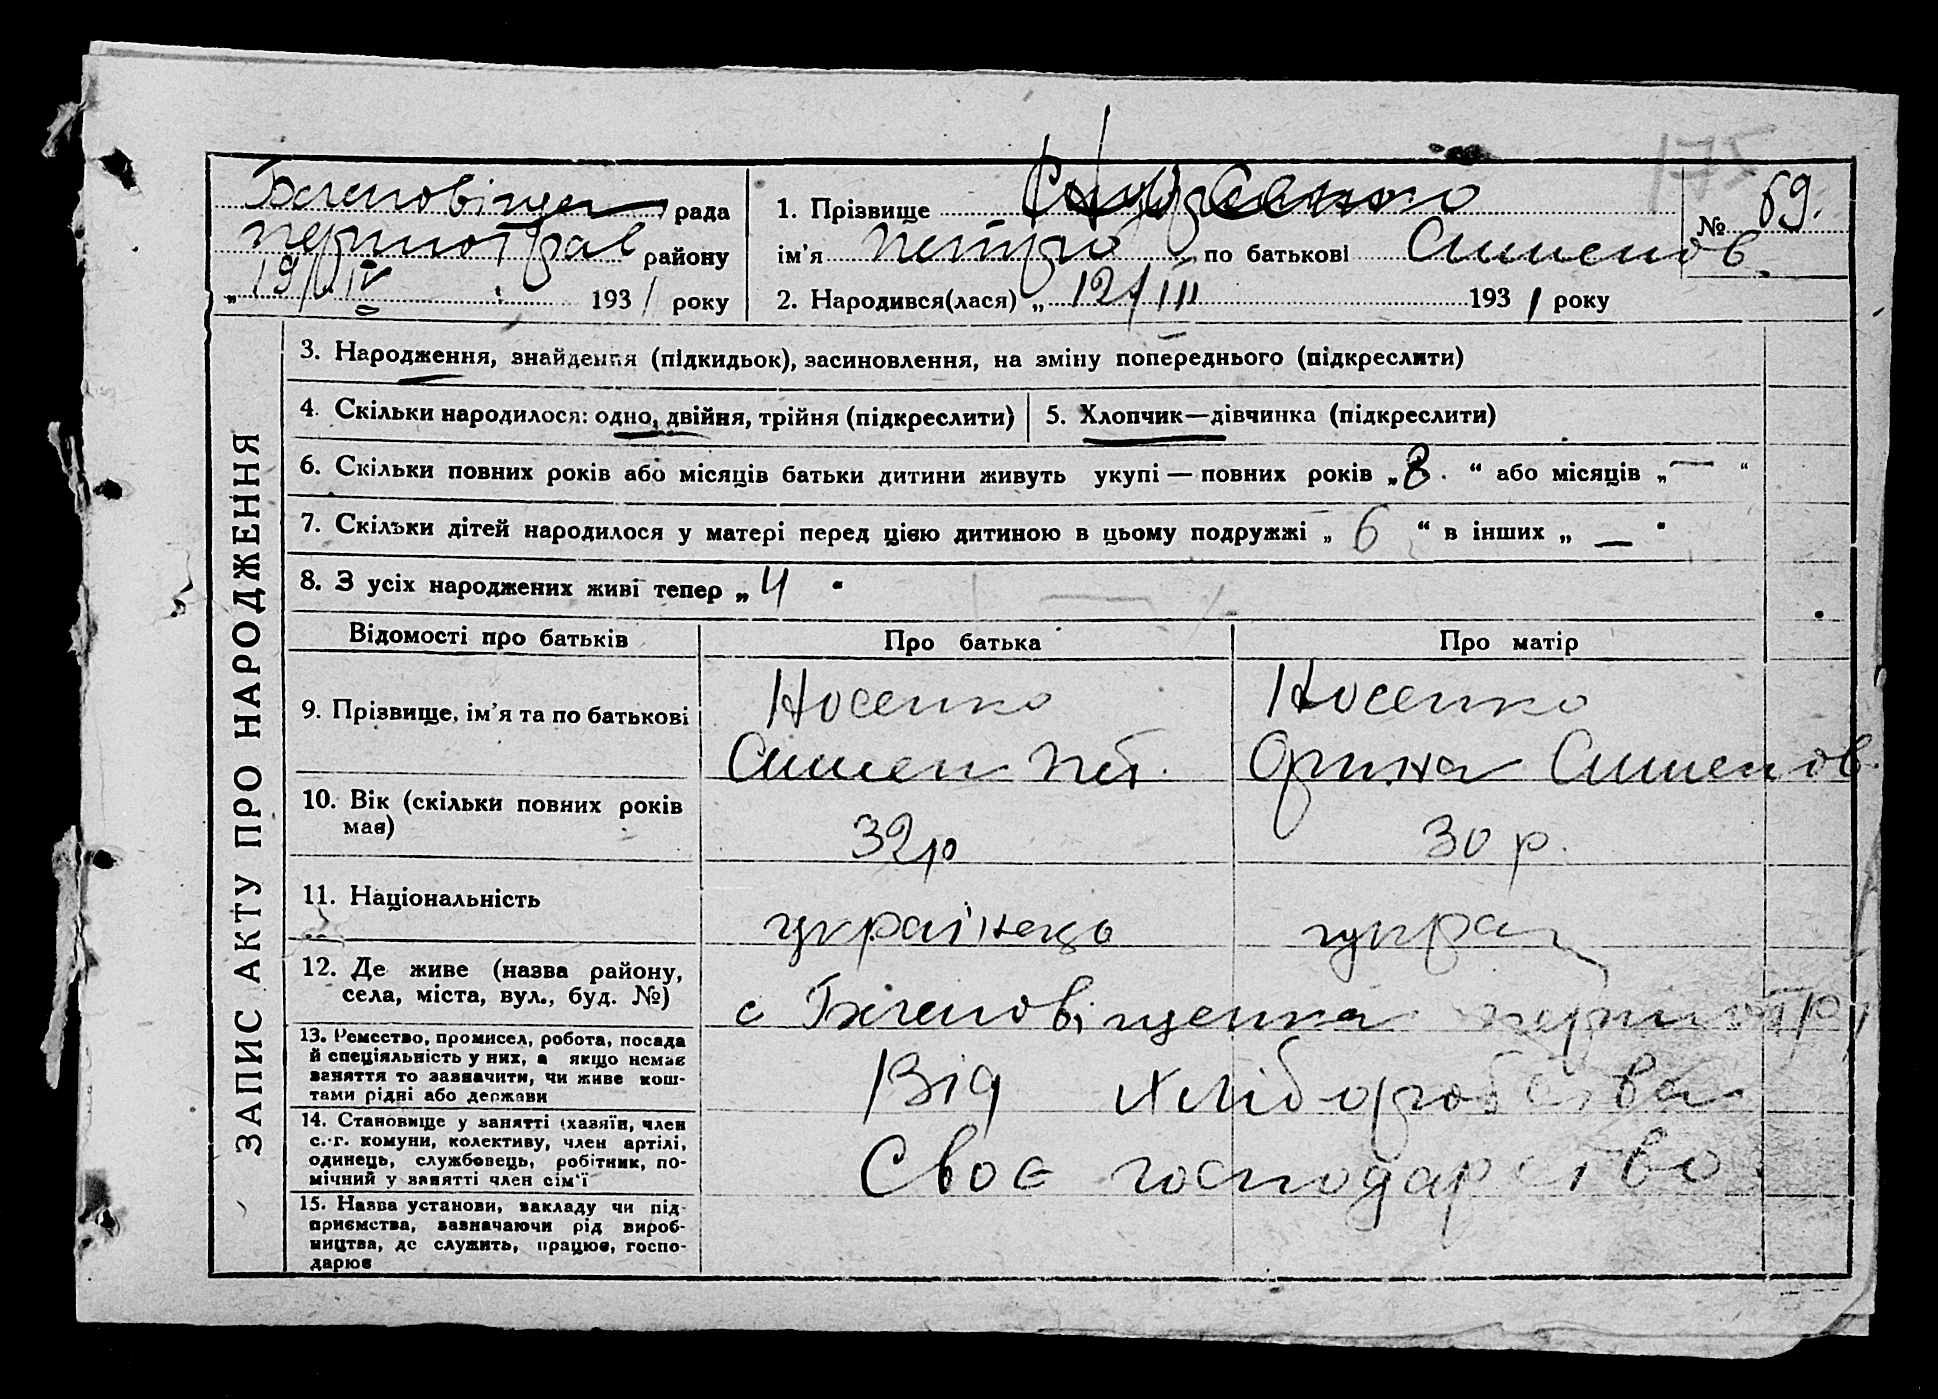 175
рада
району
„ 19/IV 1931 року
1. Прізвище
№ 69.
ім'я Петро по батькові Сименов.
2. Народився(лася) „ 12/III 1931 року
ЗАПИС АКТУ ПРО НАРОДЖЕННЯ
3. Народження, знайдення (підкидьок), засиновлення, на зміну попереднього (підкреслити)
4. Скільки народилося: одно, двійня, трійня (підкреслити)
5. Хлопчик—дівчинка (підкреслити)
6. Скільки повних років або місяців батьки дитини живуть укупі — повних років „8. “ або місяців „—“
7. Скільки дітей народилося у матері перед цією дитиною в цьому подружжі „ 6 “ в інших „ — “
8. З усіх народжених живі тепер „ 4 “
Відомості про батьків
Про батька
Про матір
9. Прізвище, ім'я та по батькові
Носенко
Симен Пет.
Носенко
Орина Сименов.
10. Вік (скільки повних років
має)
32р
30 р.
11. Національність
українець
укра
12. Де живе (назва району,
села, міста, вул., буд. №)
с
13. Ремество, промисел, робота, посада
й спеціяльність у них, а якщо немає
заняття то зазначити, чи живе кош-
тами рідні або держави
Від хліборобства
14. Становище у занятті (хазяїн, член
с.-г. комуни, колективу, член артілі,
одинець, службовець, робітник, по-
мічний у занятті член сім'ї
Своє господарство
15. Назва установи, закладу чи під-
приємства, зазначаючи рід вироб-
ництва, де служить, працює, госпо-
дарює